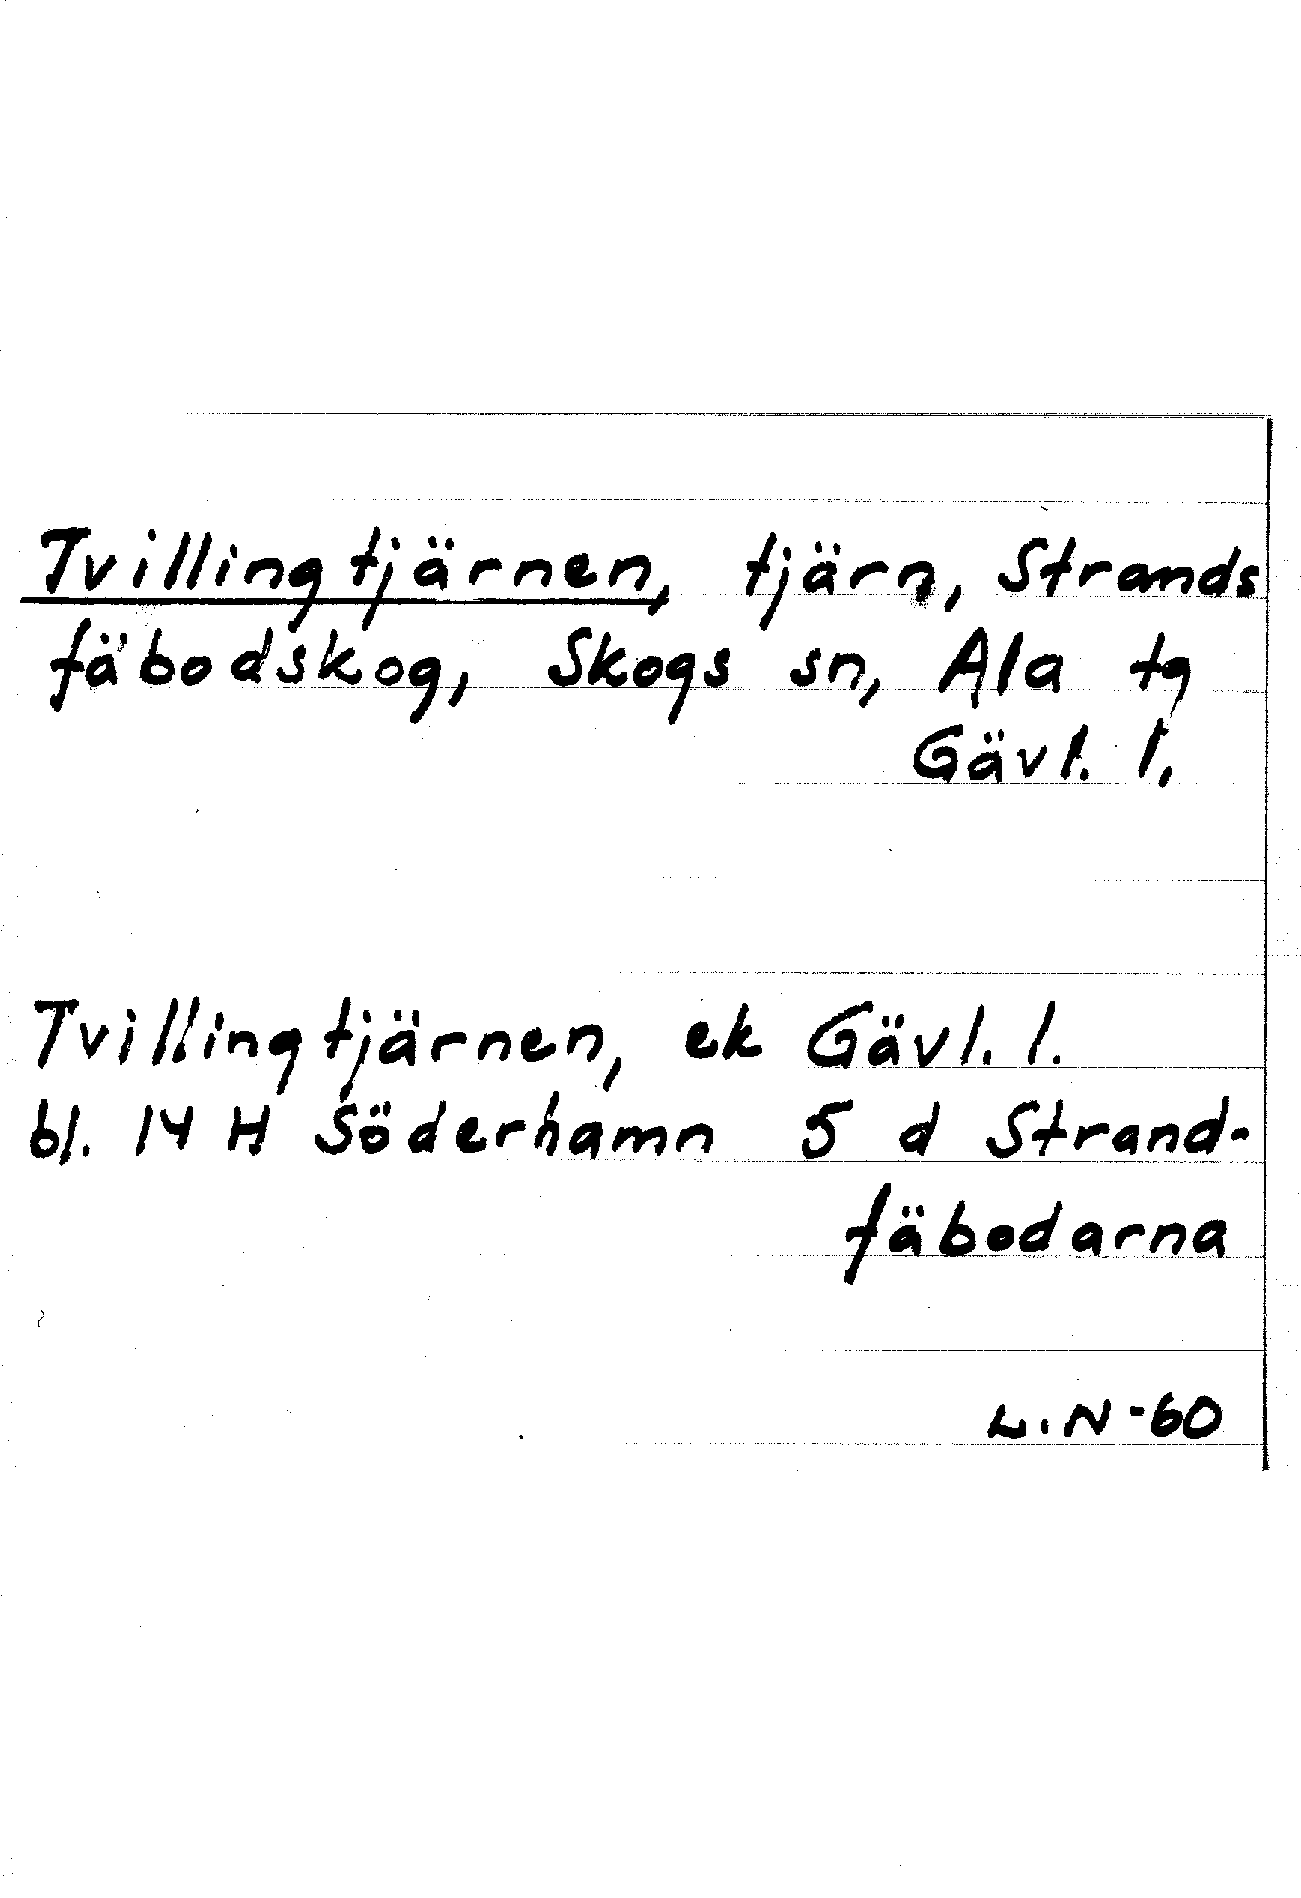 Tvillingtjärnen, tjärn, Strands
fäbodskog, Skogs sn, Ala tg
Gävl. l.
Tvillingtjärnen, ek Gävl. l.
bl. 14 H Söderhamn 5 d Strand-
fäbodarna
L.N-60